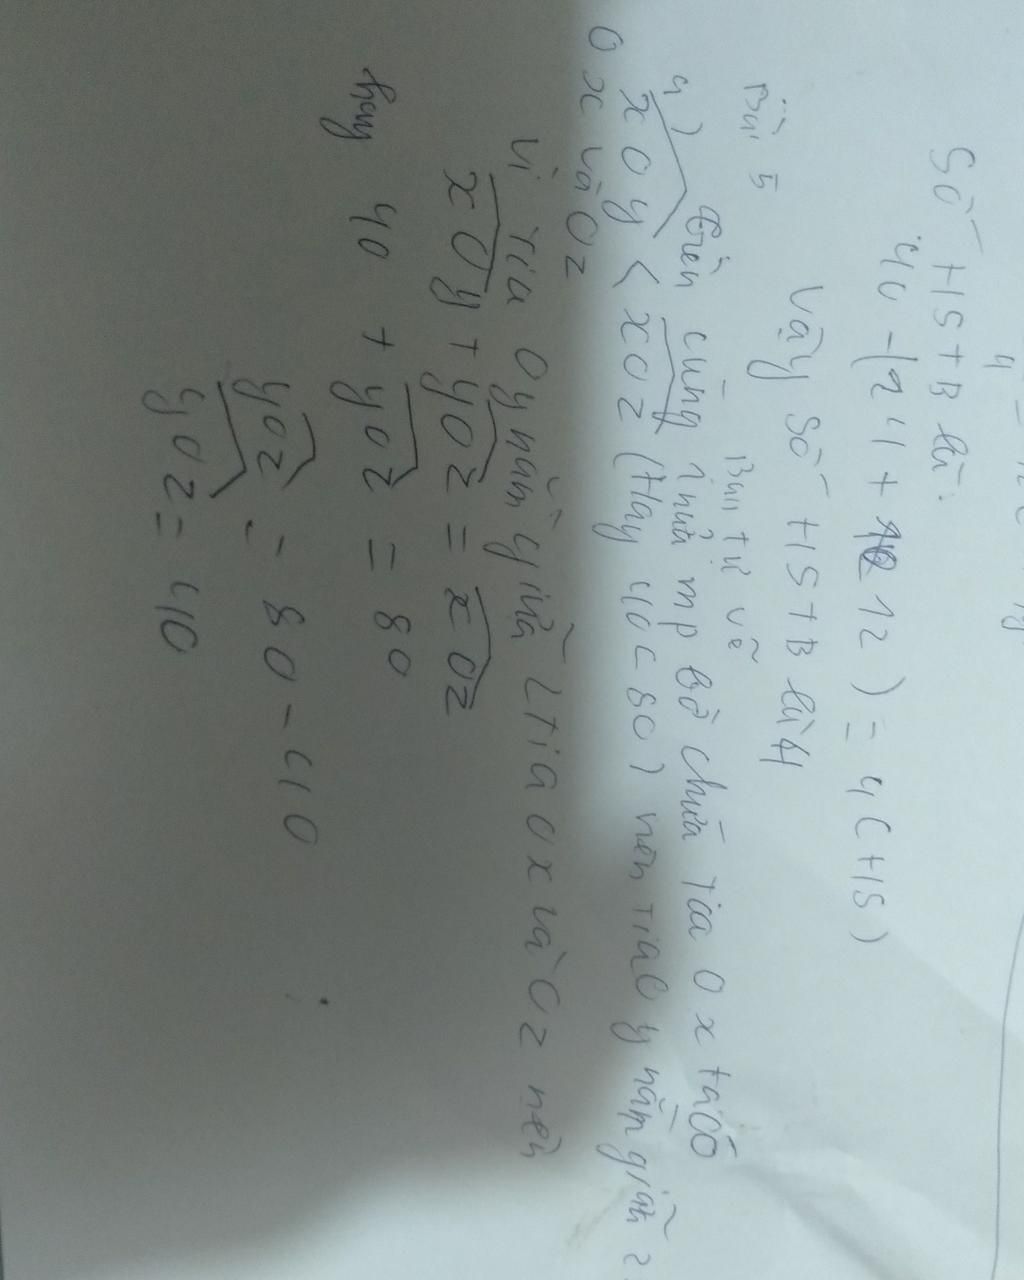 Số HSTB là:
40 - (24 + 12) = 4 (HS)
Vậy số HSTB là 4
Bài 5 Bạn tự vẽ
a) Trên cùng 1 nửa mp bờ chứa tia Ox ta có
xOy < xOz (Hay 40 < 80) nên tia Oy nằm giữa 2
Ox và Oz
Vì Tia Oy nằm giữa 2 tia Ox và Oz nên
xOy + yOz = xOz
hay 40 + yOz = 80
yOz = 80 - 40
yOz = 40